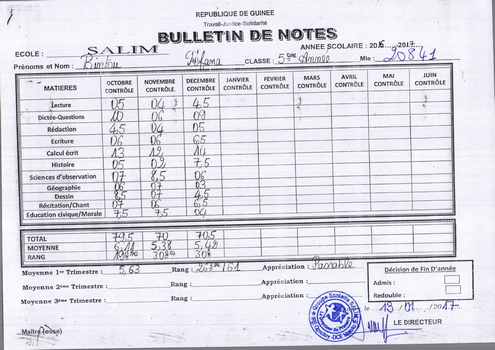 REPUBLIQUE DE GUINEE
Travail-Justice-Solidarité
BULLETIN DE NOTES
ECOLE : SALIM ANNEE SCOLAIRE : 2016 - 2017
Prénoms et Nom : Bintou Fofana CLASSE : 5ème Année Mle : 20841
MATIERES OCTOBRE CONTRÔLE NOVEMBRE CONTRÔLE DECEMBRE CONTRÔLE JANVIER CONTRÔLE FEVRIER CONTRÔLE MARS CONTRÔLE AVRIL CONTRÔLE MAI CONTRÔLE JUIN CONTRÔLE
Lecture 05 04 4,5
Dictée-Questions 10 06 09
Rédaction 4,5 04 05
Ecriture 06 06 6,5
Calcul écrit 13 12 14
Histoire 05 02 7,5
Sciences d'observation 07 8,5 06
Géographie 06 07 03
Dessin 8,5 07 4,5
Récitation/Chant 07 06 6,5
Education civique/Morale 7,5 7,5 04
TOTAL 79,5 70 70,5
MOYENNE 6,11 5,38 5,42
RANG
Moyenne 1er Trimestre : 5,63 Rang : /61 Appréciation : Passable
Moyenne 2ème Trimestre : Rang : Appréciation :
Moyenne 3ème Trimestre : Rang : Appréciation :
Décision de Fin D'année
Admis :
Redouble :
le 13/01/2017
Maître (esse)
LE DIRECTEUR